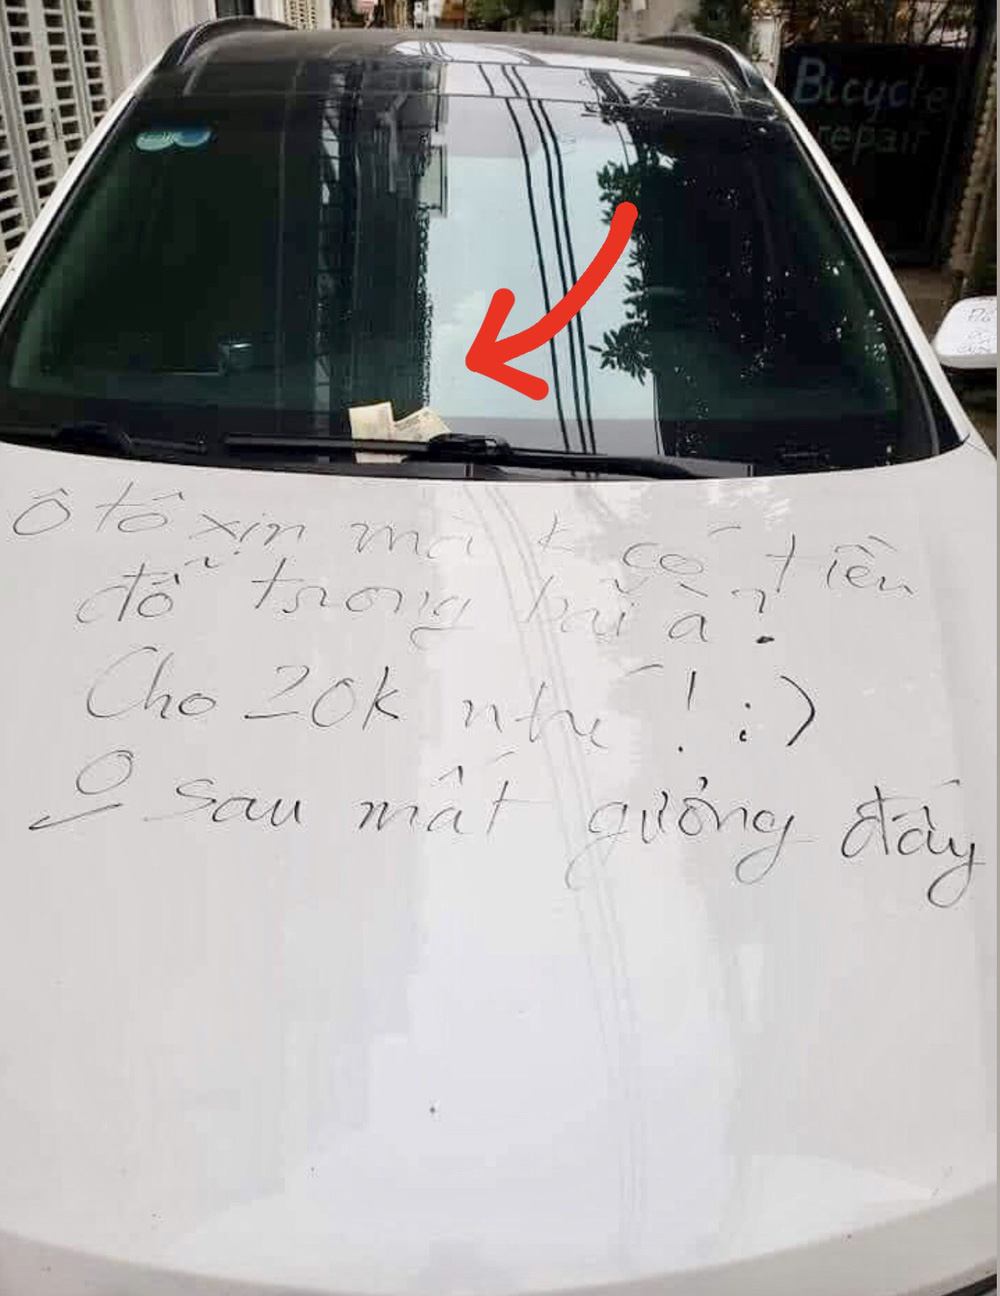 Bicycle
repair
Ô tô xịn mà k có tiền
đỗ trong bãi à?
Cho 20k nhé! :)
Lần sau mất gương đấy